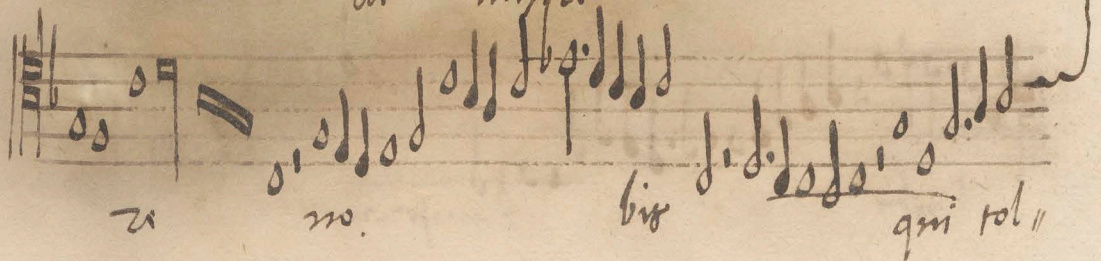 re no. bis qui tol〃